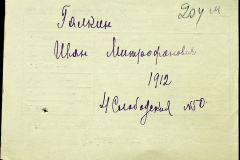 204
Галкин
Иван Митрофанович
1912
Слободская №50